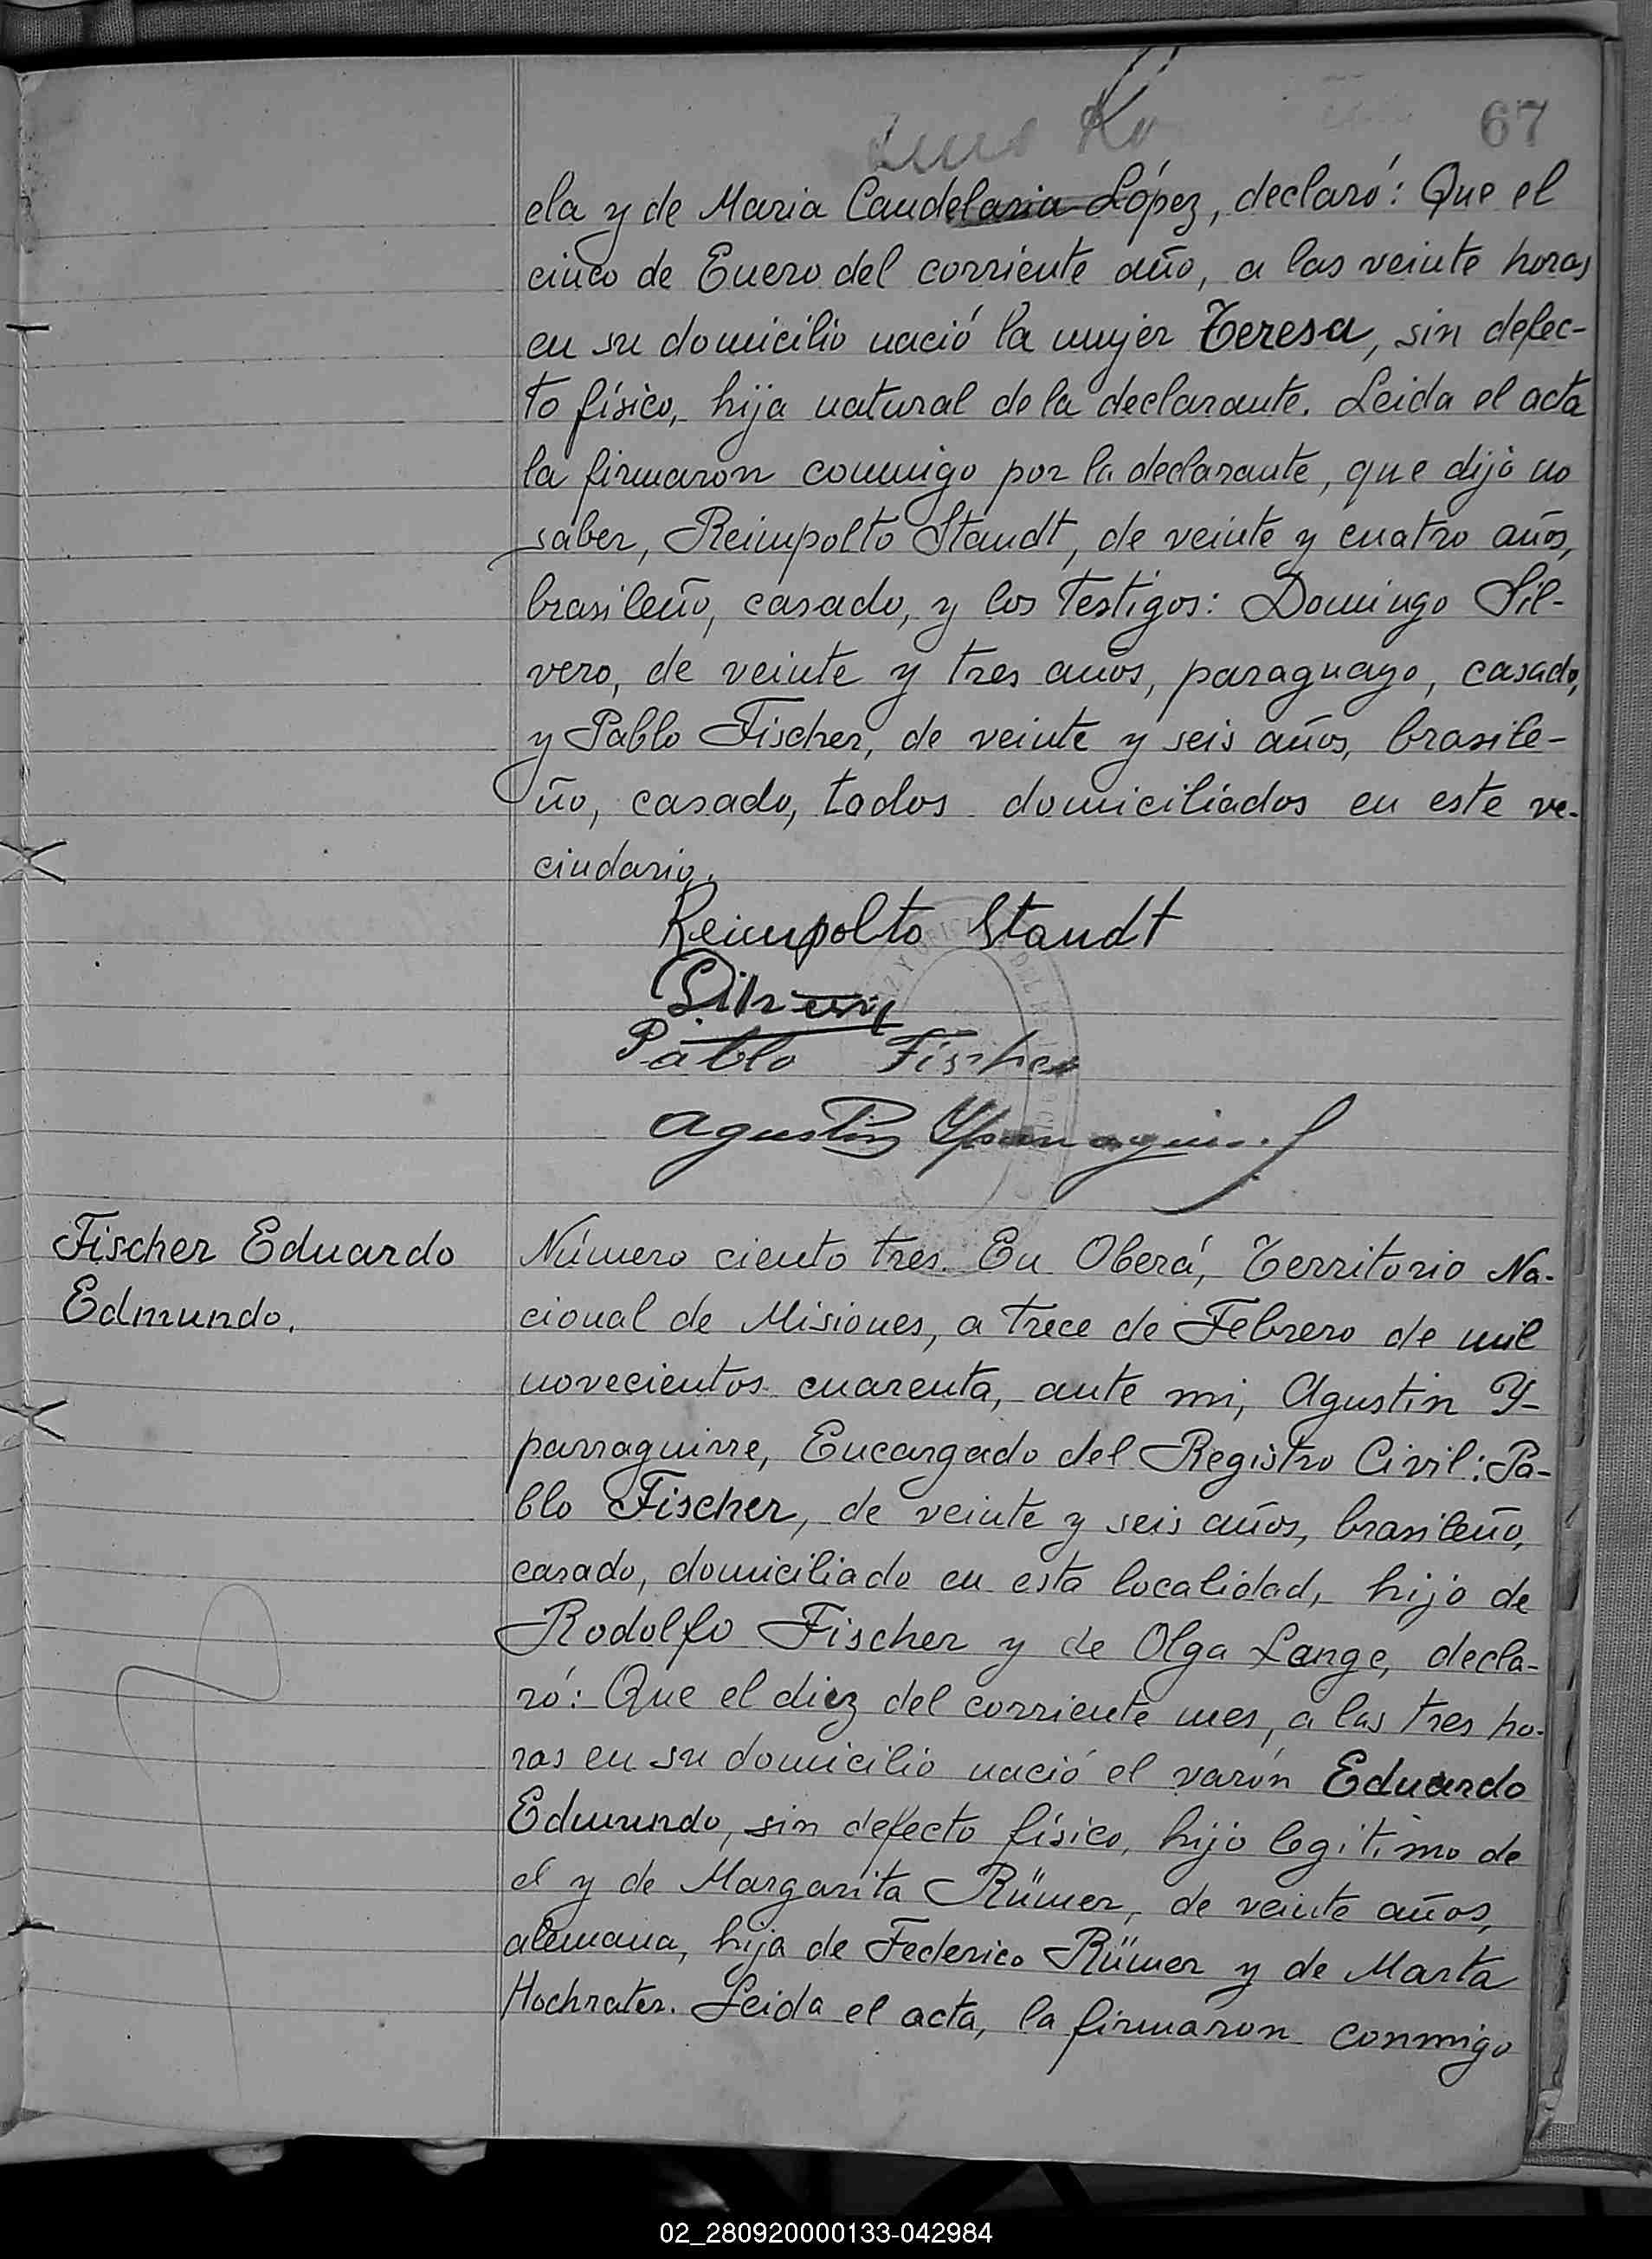 67
ela y de Maria Candelaria López, declaró: Que el
cinco de Enero del corriente año, a las veinte horas
en su domicilio nació la mujer Teresa, sin defec-
to físico, hija natural de la declarante. Leida el acta
la firmaron conmigo por la declarante, que dijo no
saber, Reimpolto Staudt, de veinte y cuatro años,
brasileño, casado, y los Testigos: Domingo Sil-
vero, de veinte y tres años, paraguayo, casado,
y Pablo Fischer, de veinte y seis años, brasile-
ño, casado, todos domiciliados en este ve-
cindario.
Reimpolto Staudt
Pablo Fischer
Agustin
Fischer Eduardo
Edmundo.
Número ciento tres. En Oberá, Territorio Na-
cional de Misiones, a trece de Febrero de mil
novecientos cuarenta, ante mi, Agustin Y-
parraguirre, Encargado del Registro Civil: Pa-
blo Fischer, de veinte y seis años, brasileño,
casado, domiciliado en esta localidad, hijo de
Rodolfo Fischer y de Olga Lange, decla-
ró: Que el diez del corriente mes, a las tres ho-
ras en su domicilio nació el varón Eduardo
Edmundo, sin defecto físico, hijo legitimo de
el y de Margarita Rümer, de veinte años,
alemana, hija de Federico Rümer y de Marta
Hochrater. Leida el acta, la firmaron conmigo
02_280920000133-042984